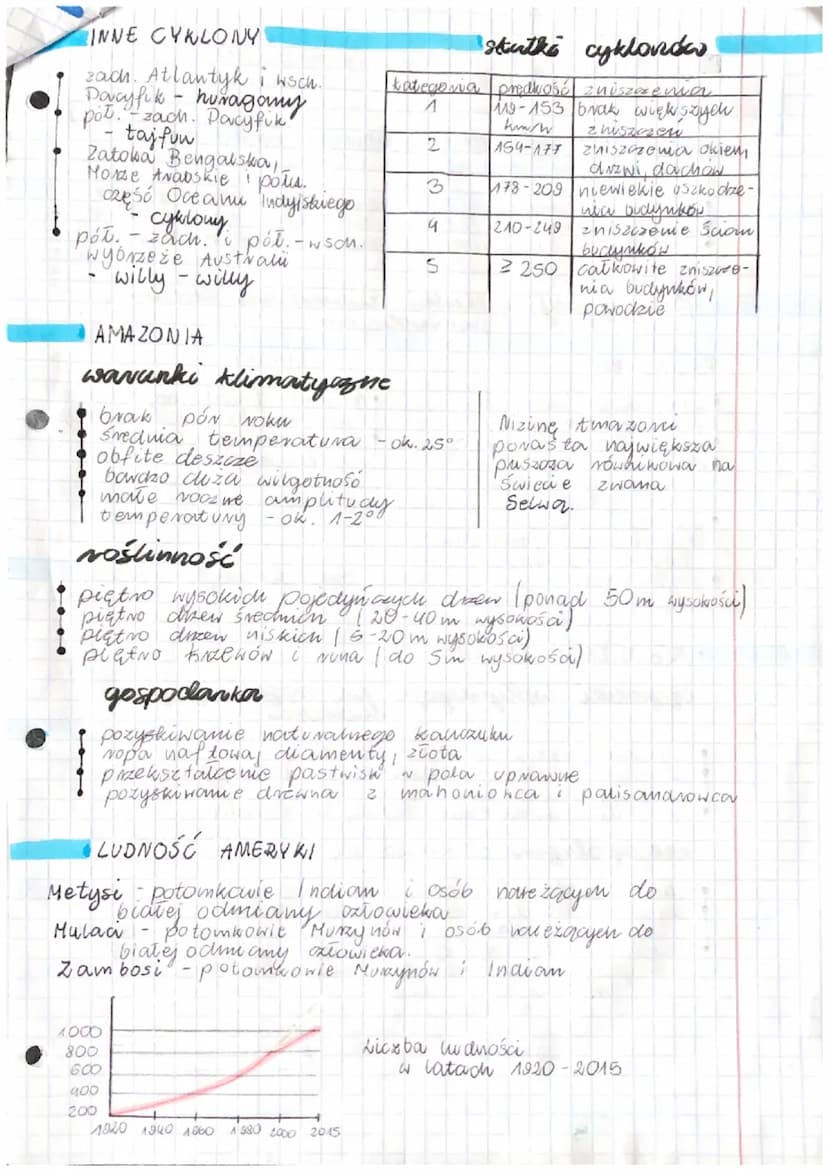 INNE CYKLONY
zach. Atlantyk i wsch.
Pacyfik - huragany
płd. - zach. Pacyfik
- tajfun
Zatoka Bengalska,
Morze Arabskie i połu.
część Oceanu Indyjskiego
- cyklony
pół. - zach. i pół. - wsch.
wybrzeże Australii
- willy - willy
skutki cyklonów
kategoria prędkość zniszczenia
1 119-153 km/h brak większych zniszczeń
2 154-177 zniszczenia okien, drzwi, dachów
3 178-209 niewielkie uszkodzenia budynków
4 210-249 zniszczenie ścian budynków
5 ≥ 250 całkowite zniszczenia budynków, powodzie
AMAZONIA
warunki klimatyczne
brak pór roku
średnia temperatura - ok. 25°
obfite deszcze
bardzo duża wilgotność
małe roczne amplitudy
temperatury - ok. 1-2°
Nizinę Amazonii
porasta największa
puszcza równikowa na
świecie zwana
Selwą.
roślinność
piętro wysokich pojedyńczych drzew (ponad 50m wysokości)
piętro drzew średnich (20-40m wysokości)
piętro drzew niskich (5-20m wysokości)
piętro krzewów i runa (do 5m wysokości)
gospodarka
pozyskiwanie naturalnego kauczuku
ropa naftowa, diamenty, złota
przekształcenie pastwisk w pola uprawne
pozyskiwanie drewna z mahoniowca i palisandrowca
LUDNOŚĆ AMERYKI
Metysi - potomkowie Indian i osób należących do
białej odmiany człowieka
Mulaci - potomkowie Murzynów i osób należących do
białej odmiany człowieka.
Zambosi - potomkowie Murzynów i Indian
1000
800
600
400
200
1920 1940 1960 1980 2000 2015
Liczba ludności
w latach 1920-2015